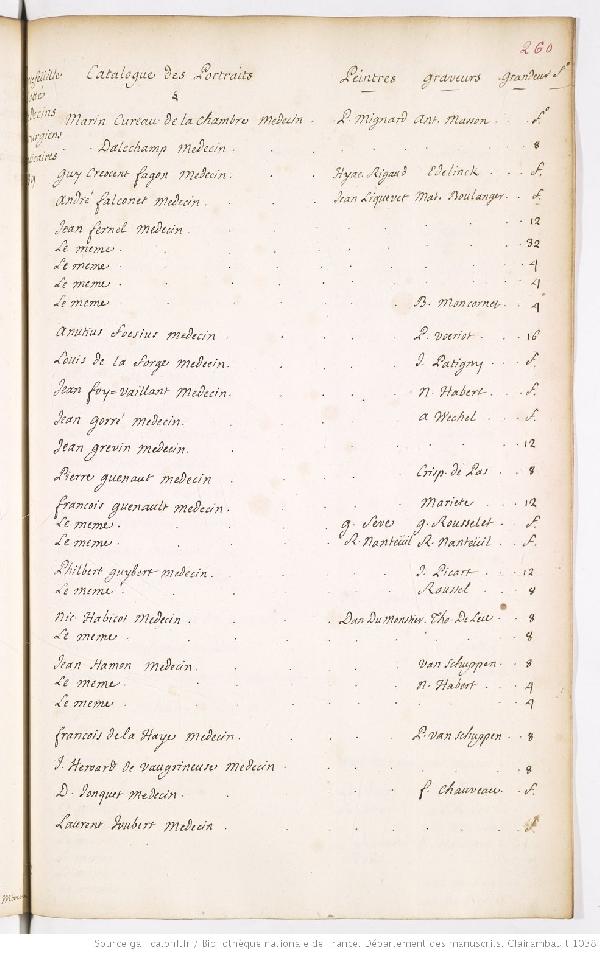 260
Catalogue des Portraits Peintres graveurs grandeur f.º
&
Marin Cureau de la chambre medecin . P. Mignard Ant. Masson . . f.º
Dalechamp Medecin . . . . . . 8
Guy Cresent fagon Medecin . . Hyac. Rigaud Edelinck . . f.
André falconet medecin . . . Jean Liquevet Mat. Boulanger . f.
Jean fernel medecin . . . . . . 12
Le meme . . . . . . . 32
Le meme . . . . . . . 4
Le meme . . . . . . . 4
Le meme . . . . . B. Moncornet . . 4
Anutius foesius medecin . . . . P. voeriot . . 16
Louis de la forge medecin . . . . J. Patigny . . f.
Jean foy=vaillant Medecin . . . . n. Habert . . f.
Jean gorré medecin . . . . a Wechel . . f.
Jean grevin medecin . . . . . . 12
Pierre guenaut medecin . . . . Crisp. de Pas . . 8
francois guenault medecin . . . . Mariete . . 12
Le meme . . . . g. Seve g. Rousselet . f.
Le meme . . . . R. Nanteüil R. Nanteüil . f.
Philbert guybert medecin . . . . J. Picart . . 12
Le meme . . . . . Roussel . . 8
Nic Habicot Medecin . . . Dan Du Monstier. Tho. De Leu . . 8
Le meme . . . . . . . 8
Jean Hamon medecin . . . . van schuppen . . 8
Le meme . . . . . n. Habert . . 4
Le meme . . . . . . . 4
francois de la Haye medecin . . . . P. van schuppen . . 8
J. Heroard de vaugrineuse medecin . . . . . 8
D. Jonquet medecin . . . . f. chauveau . . f.
Laurent Joubert medecin . . . . . . f
Source gallica.bnf.fr / Bibliothèque nationale de France. Département des manuscrits. Clairambault 1038